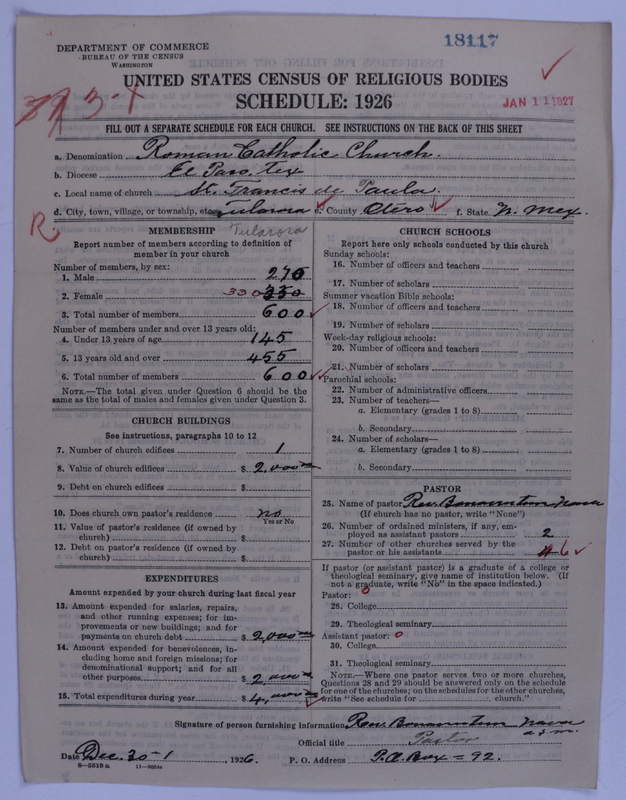 18117
DEPARTMENT OF COMMERCE
BUREAU OF THE CENSUS
WASHINGTON
UNITED STATES CENSUS OF RELIGIOUS BODIES
SCHEDULE: 1926
JAN 11 1927
FILL OUT A SEPARATE SCHEDULE FOR EACH CHURCH. SEE INSTRUCTIONS ON THE BACK OF THIS SHEET
a. Denomination Roman Catholic Church.
b. Diocese El Paso, Tex
c. Local name of church St. Francis de Paula.
d. City, town, village, or township, etc. Tularosa e. County Otero f. State N. Mex.
R
Tularosa
MEMBERSHIP
Report number of members according to definition of
member in your church
Number of members, by sex:
1. Male 270
2. Female 330 330
3. Total number of members 600
Number of members under and over 13 years old:
4. Under 13 years of age 145
5. 13 years old and over 455
6. Total number of members 600
NOTE.—The total given under Question 6 should be the
same as the total of males and females given under Question 3.
CHURCH BUILDINGS
See instructions, paragraphs 10 to 12
7. Number of church edifices 1
8. Value of church edifices $ 2,000
9. Debt on church edifices $
10. Does church own pastor's residence no
Yes or No
11. Value of pastor's residence (if owned by
church) $
12. Debt on pastor's residence (if owned by
church) $
EXPENDITURES
Amount expended by your church during last fiscal year
13. Amount expended for salaries, repairs,
and other running expenses; for im-
provements or new buildings; and for
payments on church debt $ 2,000
14. Amount expended for benevolences, in-
cluding home and foreign missions; for
denominational support; and for all
other purposes $ 2,000
15. Total expenditures during year $ 4,000
CHURCH SCHOOLS
Report here only schools conducted by this church
Sunday schools:
16. Number of officers and teachers
17. Number of scholars
Summer vacation Bible schools:
18. Number of officers and teachers
19. Number of scholars
Week-day religious schools:
20. Number of officers and teachers
21. Number of scholars
Parochial schools:
22. Number of administrative officers
23. Number of teachers—
a. Elementary (grades 1 to 8)
b. Secondary
24. Number of scholars—
a. Elementary (grades 1 to 8)
b. Secondary
PASTOR
25. Name of pastor Rev. Bonaventure Nava
(If church has no pastor, write "None")
26. Number of ordained ministers, if any, em-
ployed as assistant pastors 2
27. Number of other churches served by the
pastor or his assistants 6
If pastor (or assistant pastor) is a graduate of a college or
theological seminary, give name of institution below. (If
not a graduate, write "No" in the space indicated.)
Pastor: 0
28. College
29. Theological seminary
Assistant pastor: 0
30. College
31. Theological seminary
NOTE.—Where one pastor serves two or more churches,
Questions 28 and 29 should be answered only on the schedule
for one of the churches; on the schedules for the other churches,
write "See schedule for church."
Signature of person furnishing information Rev. Bonaventure Nava
o.f.m.
Official title Pastor
Date Dec. 30-1, 1926. P. O. Address P.O. Box = 92.